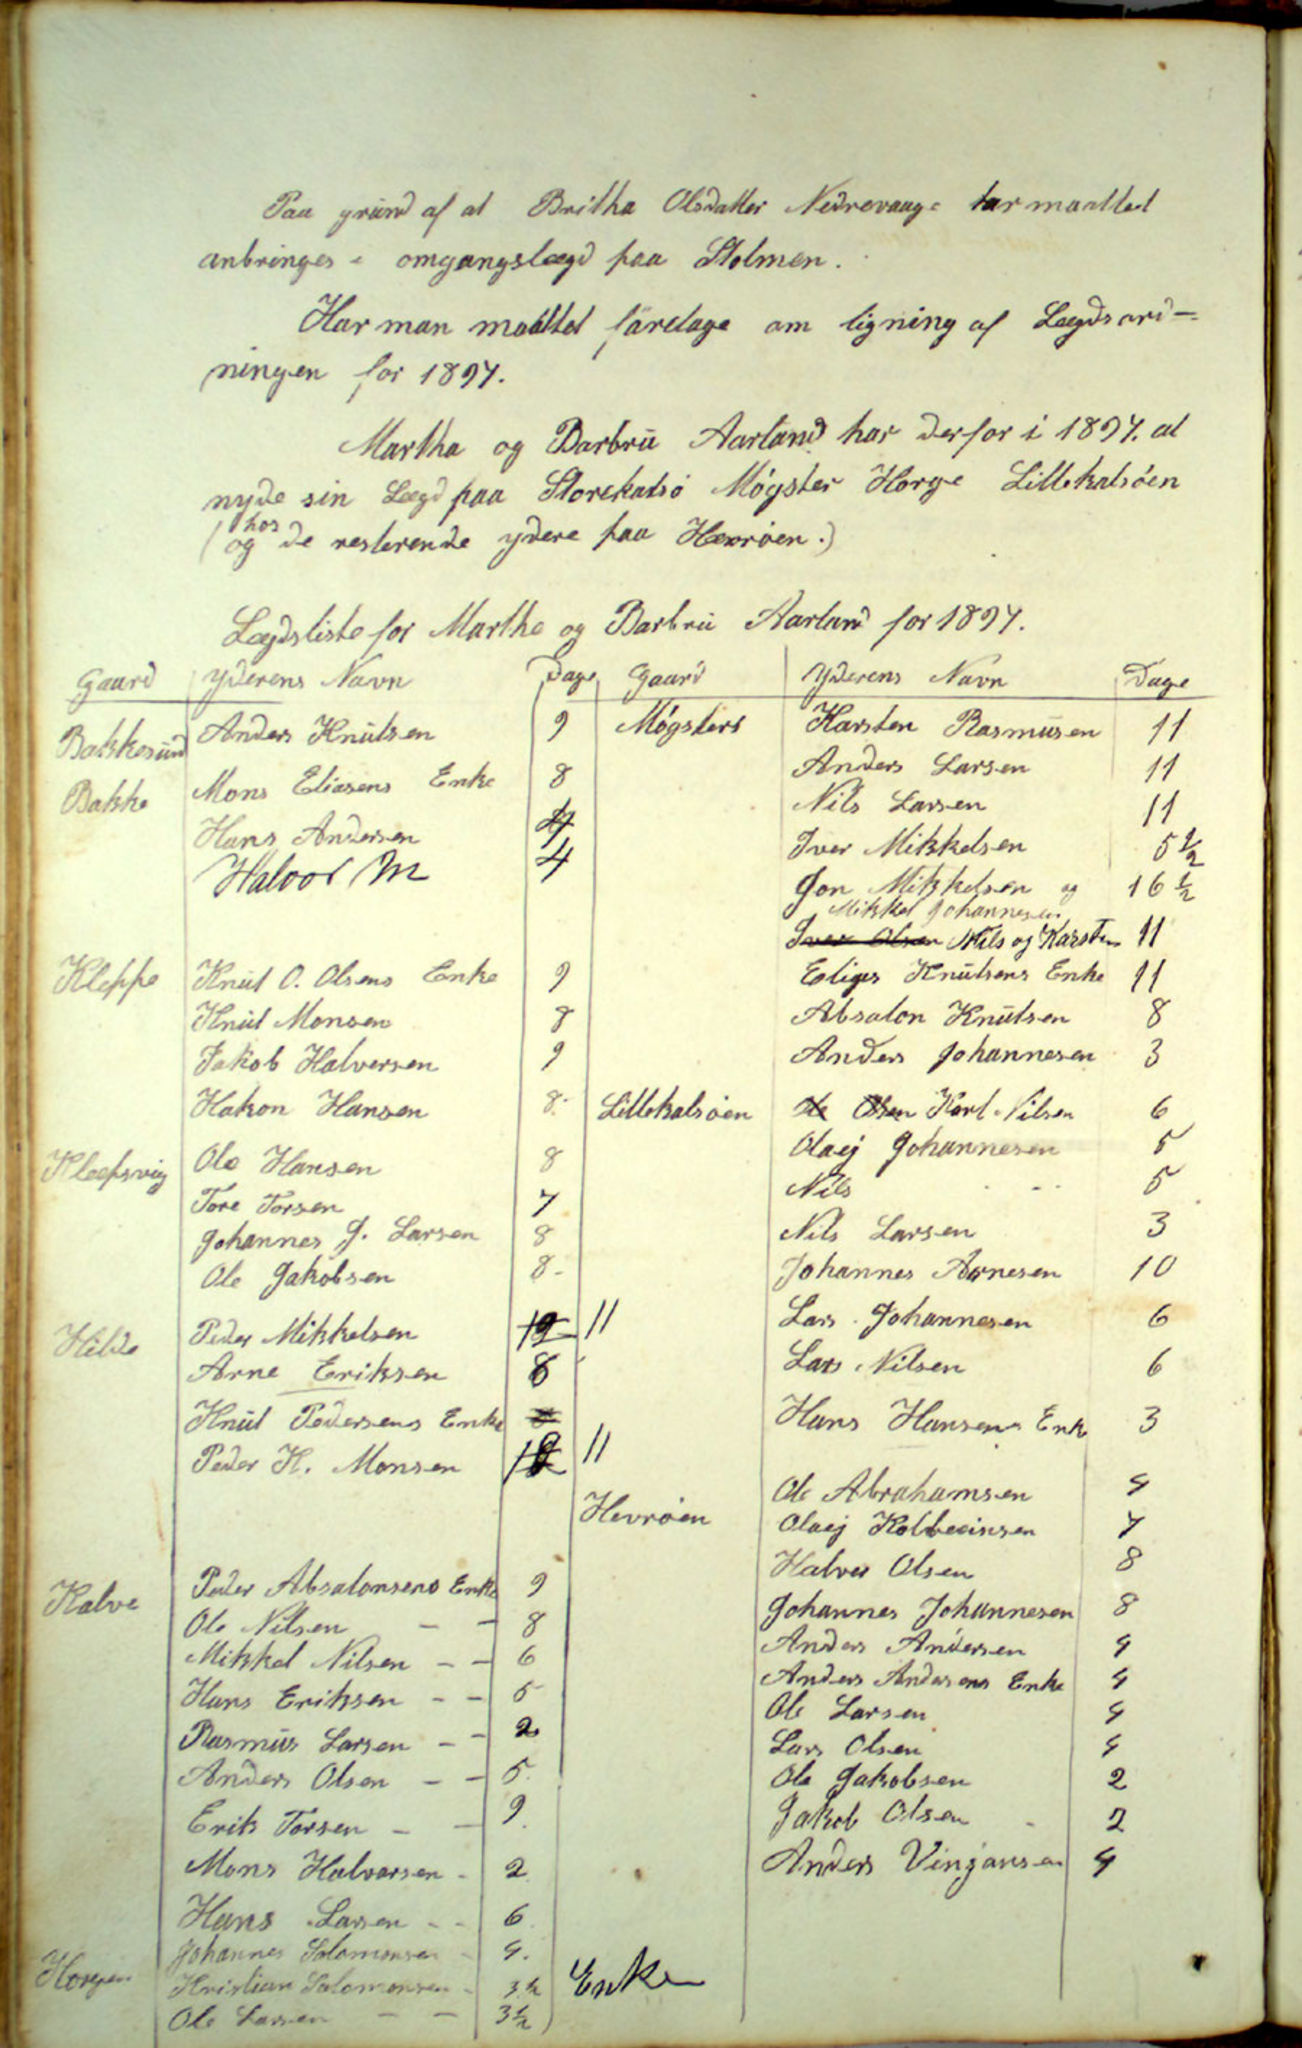 Paa grund af at Britha Olsdatter Nedrevaage har maattet
anbringes i omgangslægd paa Stolmen.
Har man maattet foretage om ligning af Lægdsord-
ningen for 1897.
Martha og Barbru Aarland har derfor i 1897. at
nyde sin Lægd paa Storekalsø Møgster Horge Lillekalsøen
(og hos de resterende ydere paa Hevrøen.)
Lægdsliste for Martha og Barbru Aarland for 1897.
Gaard Yderens Navn Dage Gaard Yderens Navn Dage
Bakkesund Anders Knutsen 9 Møgsters Karsten Rasmusen 11
Bakke Mons Eliasens Enke 8 Anders Larsen 11
Hans Andersen 4 Nils Larsen 11
Halvor M 4 Iver Mikkelsen 5 1/2
Jon Mikkelsen og 16 1/2
Mikkel Johannesen
Iver Olsen Nils og Karsten 11
Kleppe Knut O. Olsens Enke 9 Eliges Knutsens Enke 11
Knut Monsen 8 Absalon Knutsen 8
Jakob Halversen 9 Anders Johannesen 3
Hakon Hansen 8. Lillekalsøen Ole Olsen Karl Nilsen 6
Kleepsvig Ole Hansen 8 Olaej Johannesen 5
Tore Torsen 7 Nils - - - 5
Johannes J. Larsen 8 Nils Larsen 3
Ole Jakobsen 8- Johannes Arnesen 10
Hilde Peder Mikkelsen 12 11 Lars Johannesen 6
Arne Eriksen 8 Lars Nilsen 6
Knut Pedersens Enke Hans Hansens Enk 3
Peder H. Monsen 11
Hevrøen Ole Abrahamsen 4
Olaej Kolbeeinsen 7
Halver Olsen 8
Kalve Peder Absalonsens Enke 9 Johannes Johannesen 8
Ole Nilsen - - 8 Anders Andersen 4
Mikkel Nilsen - - 6 Anders Andersens Enke 4
Hans Eriksen - - 5 Ole Larsen 4
Rasmus Larsen - - 2 Lars Olsen 4
Anders Olsen - - 5. Ole Jakobsen 2
Erik Torsen - - 9. Jakob Olsen - 2
Mons Halvorsen - 2 Anders Vinjansen 4
Hans Larsen - - 6.
Johannes Solomonsen - 4.
Horgen Kristian Salomonsen - 3 1/2 Enke
Ole Larsen - - 3 1/2